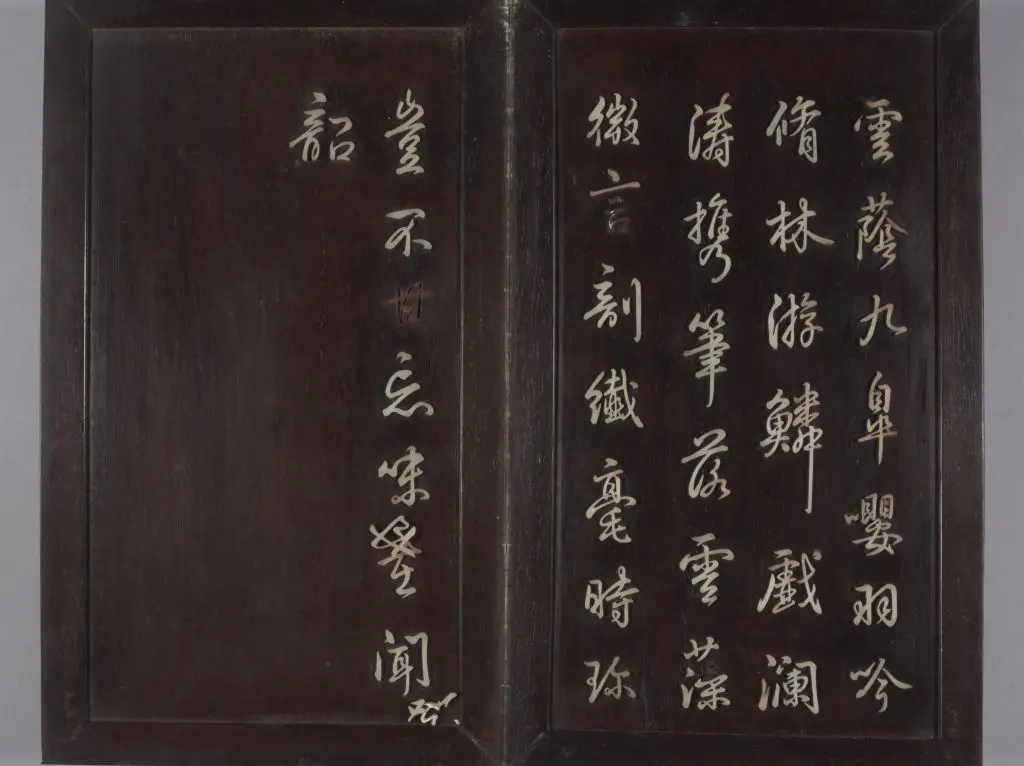 雲蔭九皐嚶羽吟
脩林游鱗戲瀾
濤携筆落雲藻
微言剖纖毫時珍
豈不忘味聞
韶